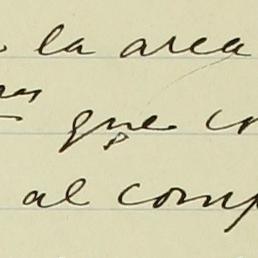 la area
que co
al comp